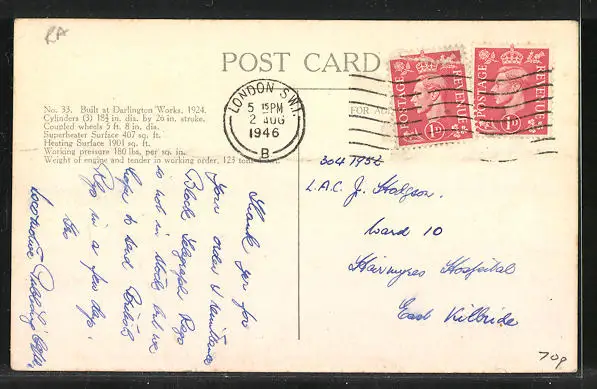 RA
POST CARD
No. 33. Built at Darlington Works, 1924.
Cylinders (3) 18½ in. dia. by 26 in. stroke.
Coupled wheels 5 ft. 8 in. dia.
Superheater Surface 407 sq. ft.
Heating Surface 1901 sq. ft.
Working pressure 180 lbs. per sq. in.
Weight of engine and tender in working order, 123 tons
FOR
LONDON S.W.1.
5 15 PM
2 AUG
1946
B
POSTAGE REVENUE
1D
POSTAGE REVENUE
1D
Thank you for
your order & remittance
Block Telegraph Regs
is not in stock but we
hope to send British
Regs in a few days.
The
Locomotive Publishing Coy Ltd.
3047952
L.A.C. J. Hodgson.
Ward 10
Hairmyres Hospital
East Kilbride
70p